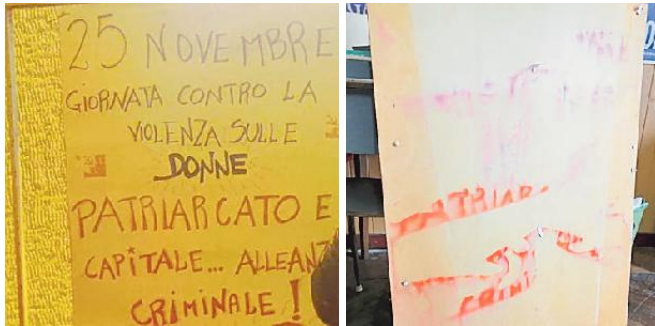 25 NOVEMBRE
GIORNATA CONTRO LA
VIOLENZA SULLE
DONNE
PATRIARCATO E
CAPITALE... ALLEANZ
CRIMINALE!
PATRIAR
CRIMI